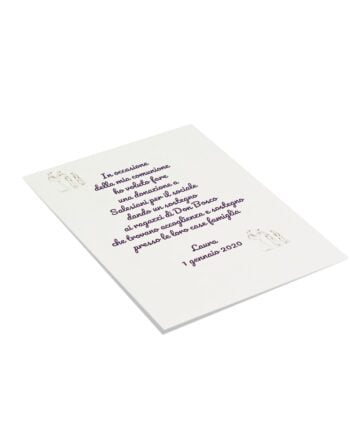 In occasione
della mia comunione
ho voluto fare
una donazione a
Salesiani per il sociale
dando un sostegno
ai ragazzi di Don Bosco
che trovano accoglienza e sostegno
presso le loro case famiglia
Laura
1 gennaio 2020